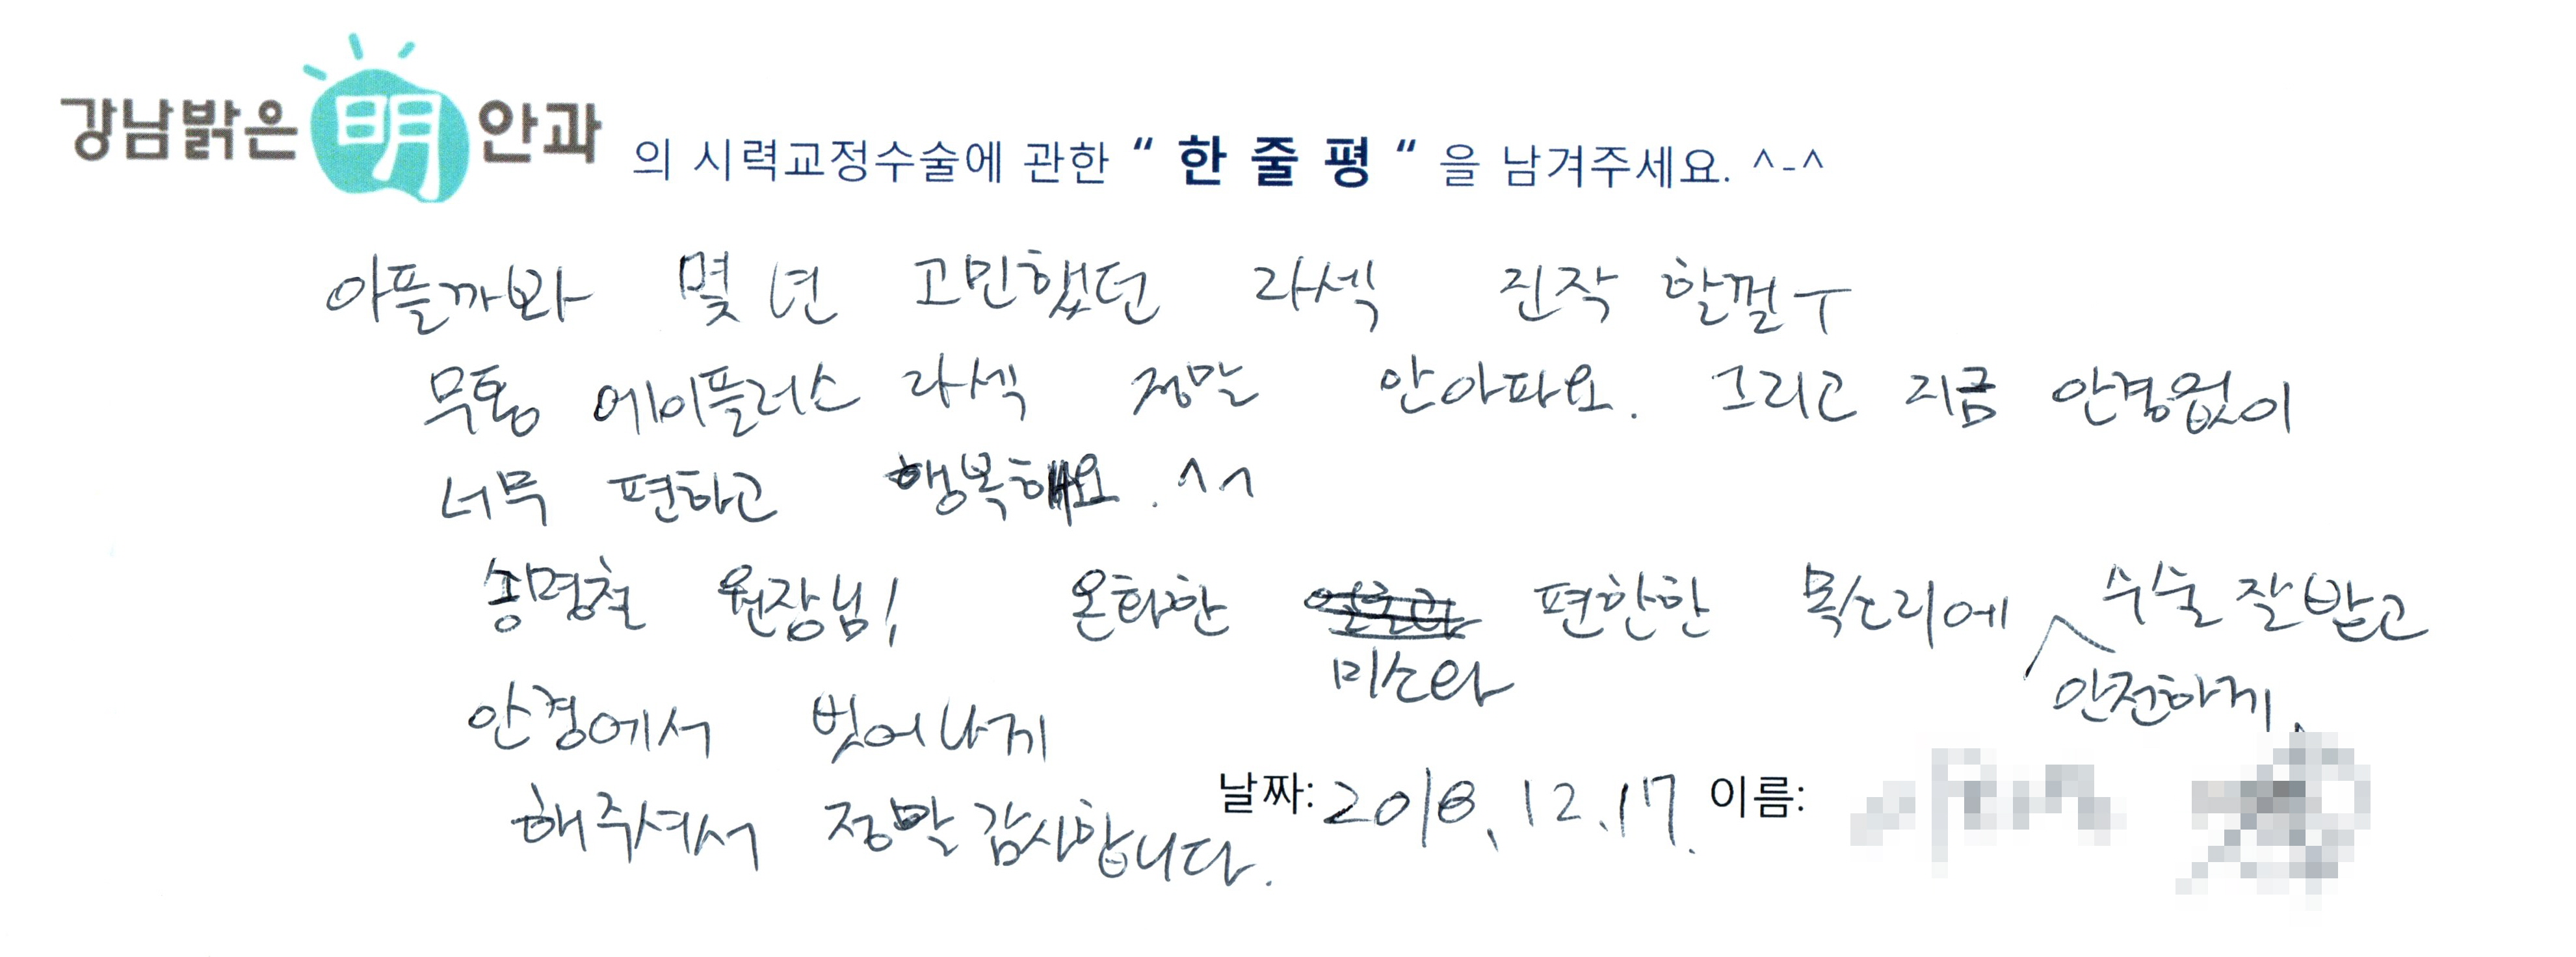 강남밝은明안과 의 시력교정수술에 관한 “ 한 줄 평 “ 을 남겨주세요. ^-^
아플까봐 몇 년 고민했던 라섹 진작 할껄ㅜ
무통 에이플러스 라섹 정말 안아파요. 그리고 지금 안경없이
너무 편하고 행복해요. ^^
송명철 원장님! 온화한 편한한 목소리에 수술 잘 받고
미소와 안전하게
안경에서 벗어나게
해주셔서 정말 감사합니다.
날짜: 2018. 12. 17. 이름: